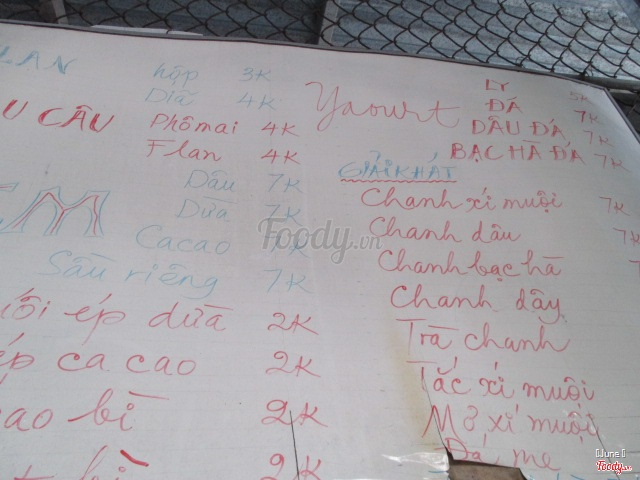 LAN
hộp 3K
Dĩa 4K
U CÂU
Phômai 4K
Flan 4K
Dâu 7K
Dừa 7K
Cacao 7K
Sầu riêng 7K
ối ép dừa 2K
ép ca cao 2K
cao bì 2K
bì 2K
Yaourt
Ly 5K
ĐÁ 7K
DÂU ĐÁ 7K
BẠC HÀ ĐÁ 7K
GIẢI KHÁT
Chanh xí muội 7K
Chanh dâu 7K
Chanh bạc hà 7
Chanh dây
Trà chanh
Tắc xí muội
Mơ xí muội
Đá me
Foody.vn
[June]
Foody.vn